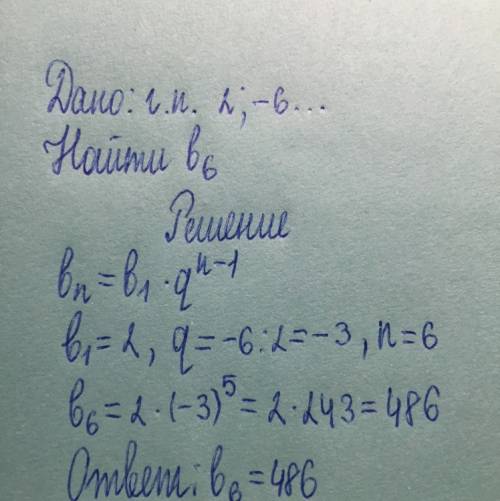 Дано: г.п. 2; -6...
Найти b₆
Решение
bₙ = b₁ · qⁿ⁻¹
b₁ = 2, q = -6:2 = -3, n = 6
b₆ = 2 · (-3)⁵ = 2 · 243 = 486
Ответ: b₆ = 486